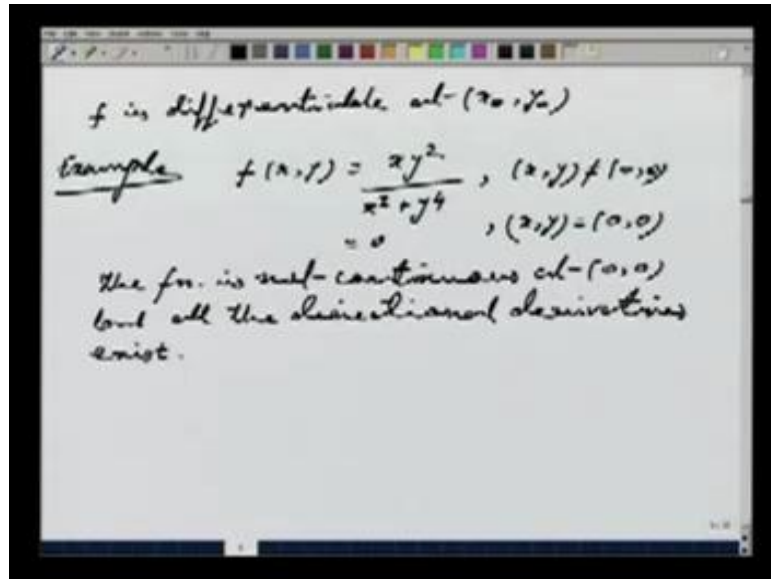 f is differentiable at (x₀, y₀)
Example f(x,y) = xy² / x² + y⁴ , (x,y) ≠ (0,0)
= 0 , (x,y) = (0,0)
The fn. is not continuous at (0,0)
but all the directional derivatives
exist.